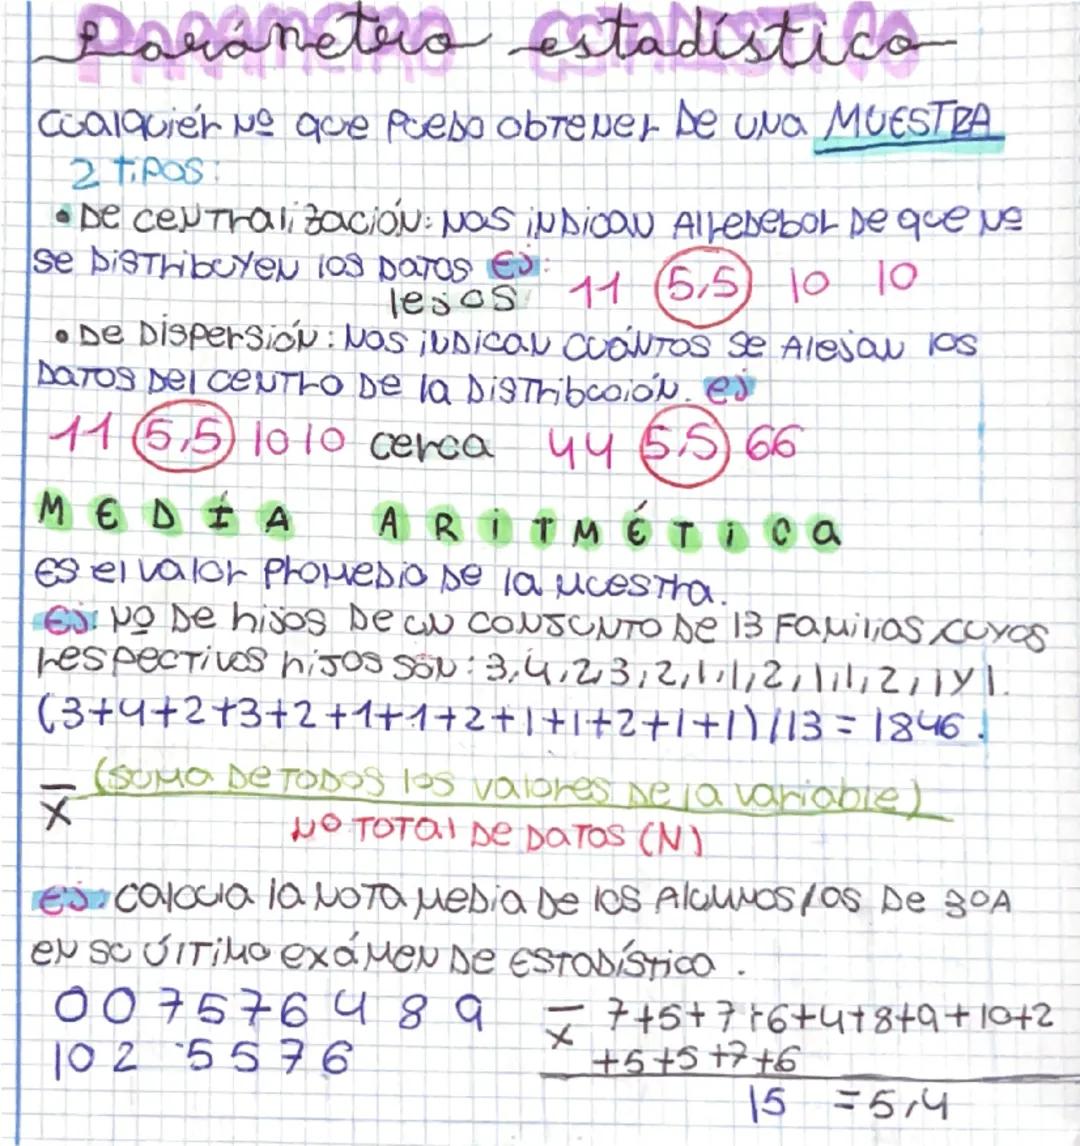 Parámetro estadístico
Cualquier Nº que puedo obtener de una MUESTRA
2 tipos:
• De centralización: Nos indican Alrededor de que Nº
se distribuyen los datos Ej:
lejos 11 5,5 10 10
• De Dispersión: Nos indican cuántos se Alejan los
Datos Del centro De la Distribución. ej
11 5,5 10 10 cerca 44 5,5 66
MEDIA ARITMÉTICA
Es el valor promedio de la muestra.
Ej: Nº De hijos De un conjunto de 13 Familias cuyos
respectivos hijos son: 3,4,2,3,2,1,1,2,1,1,2,1 y 1.
(3+4+2+3+2+1+1+2+1+1+2+1+1)/13 = 1846.
x̄ (suma de todos los valores de la variable)
Nº Total de datos (N)
Ej: calcula la nota media de los Alumnos/as De 3ºA
en su último exámen de estadística.
0 0 7 5 7 6 4 8 9
10 2 5 5 7 6
x̄ 7+5+7+6+4+8+9+10+2
+5+5+7+6
15 = 5,4